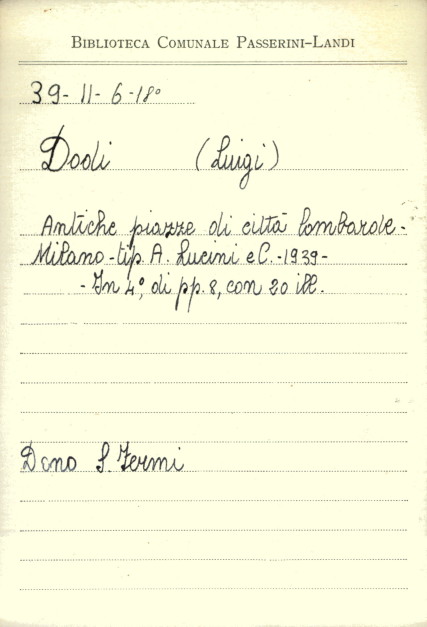 BIBLIOTECA COMUNALE PASSERINI-LANDI
39- 11- 6 -18°
Dodi (Luigi)
Antiche piazze di città lombarde.-
Milano - tip. A. Lucini e C. -1939-
- In 4°, di pp. 8, con 20 ill.
Dono S. Fermi